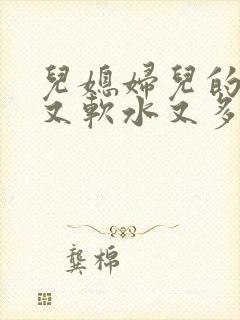 兒媳婦兒的
又軟水又多
龔棉